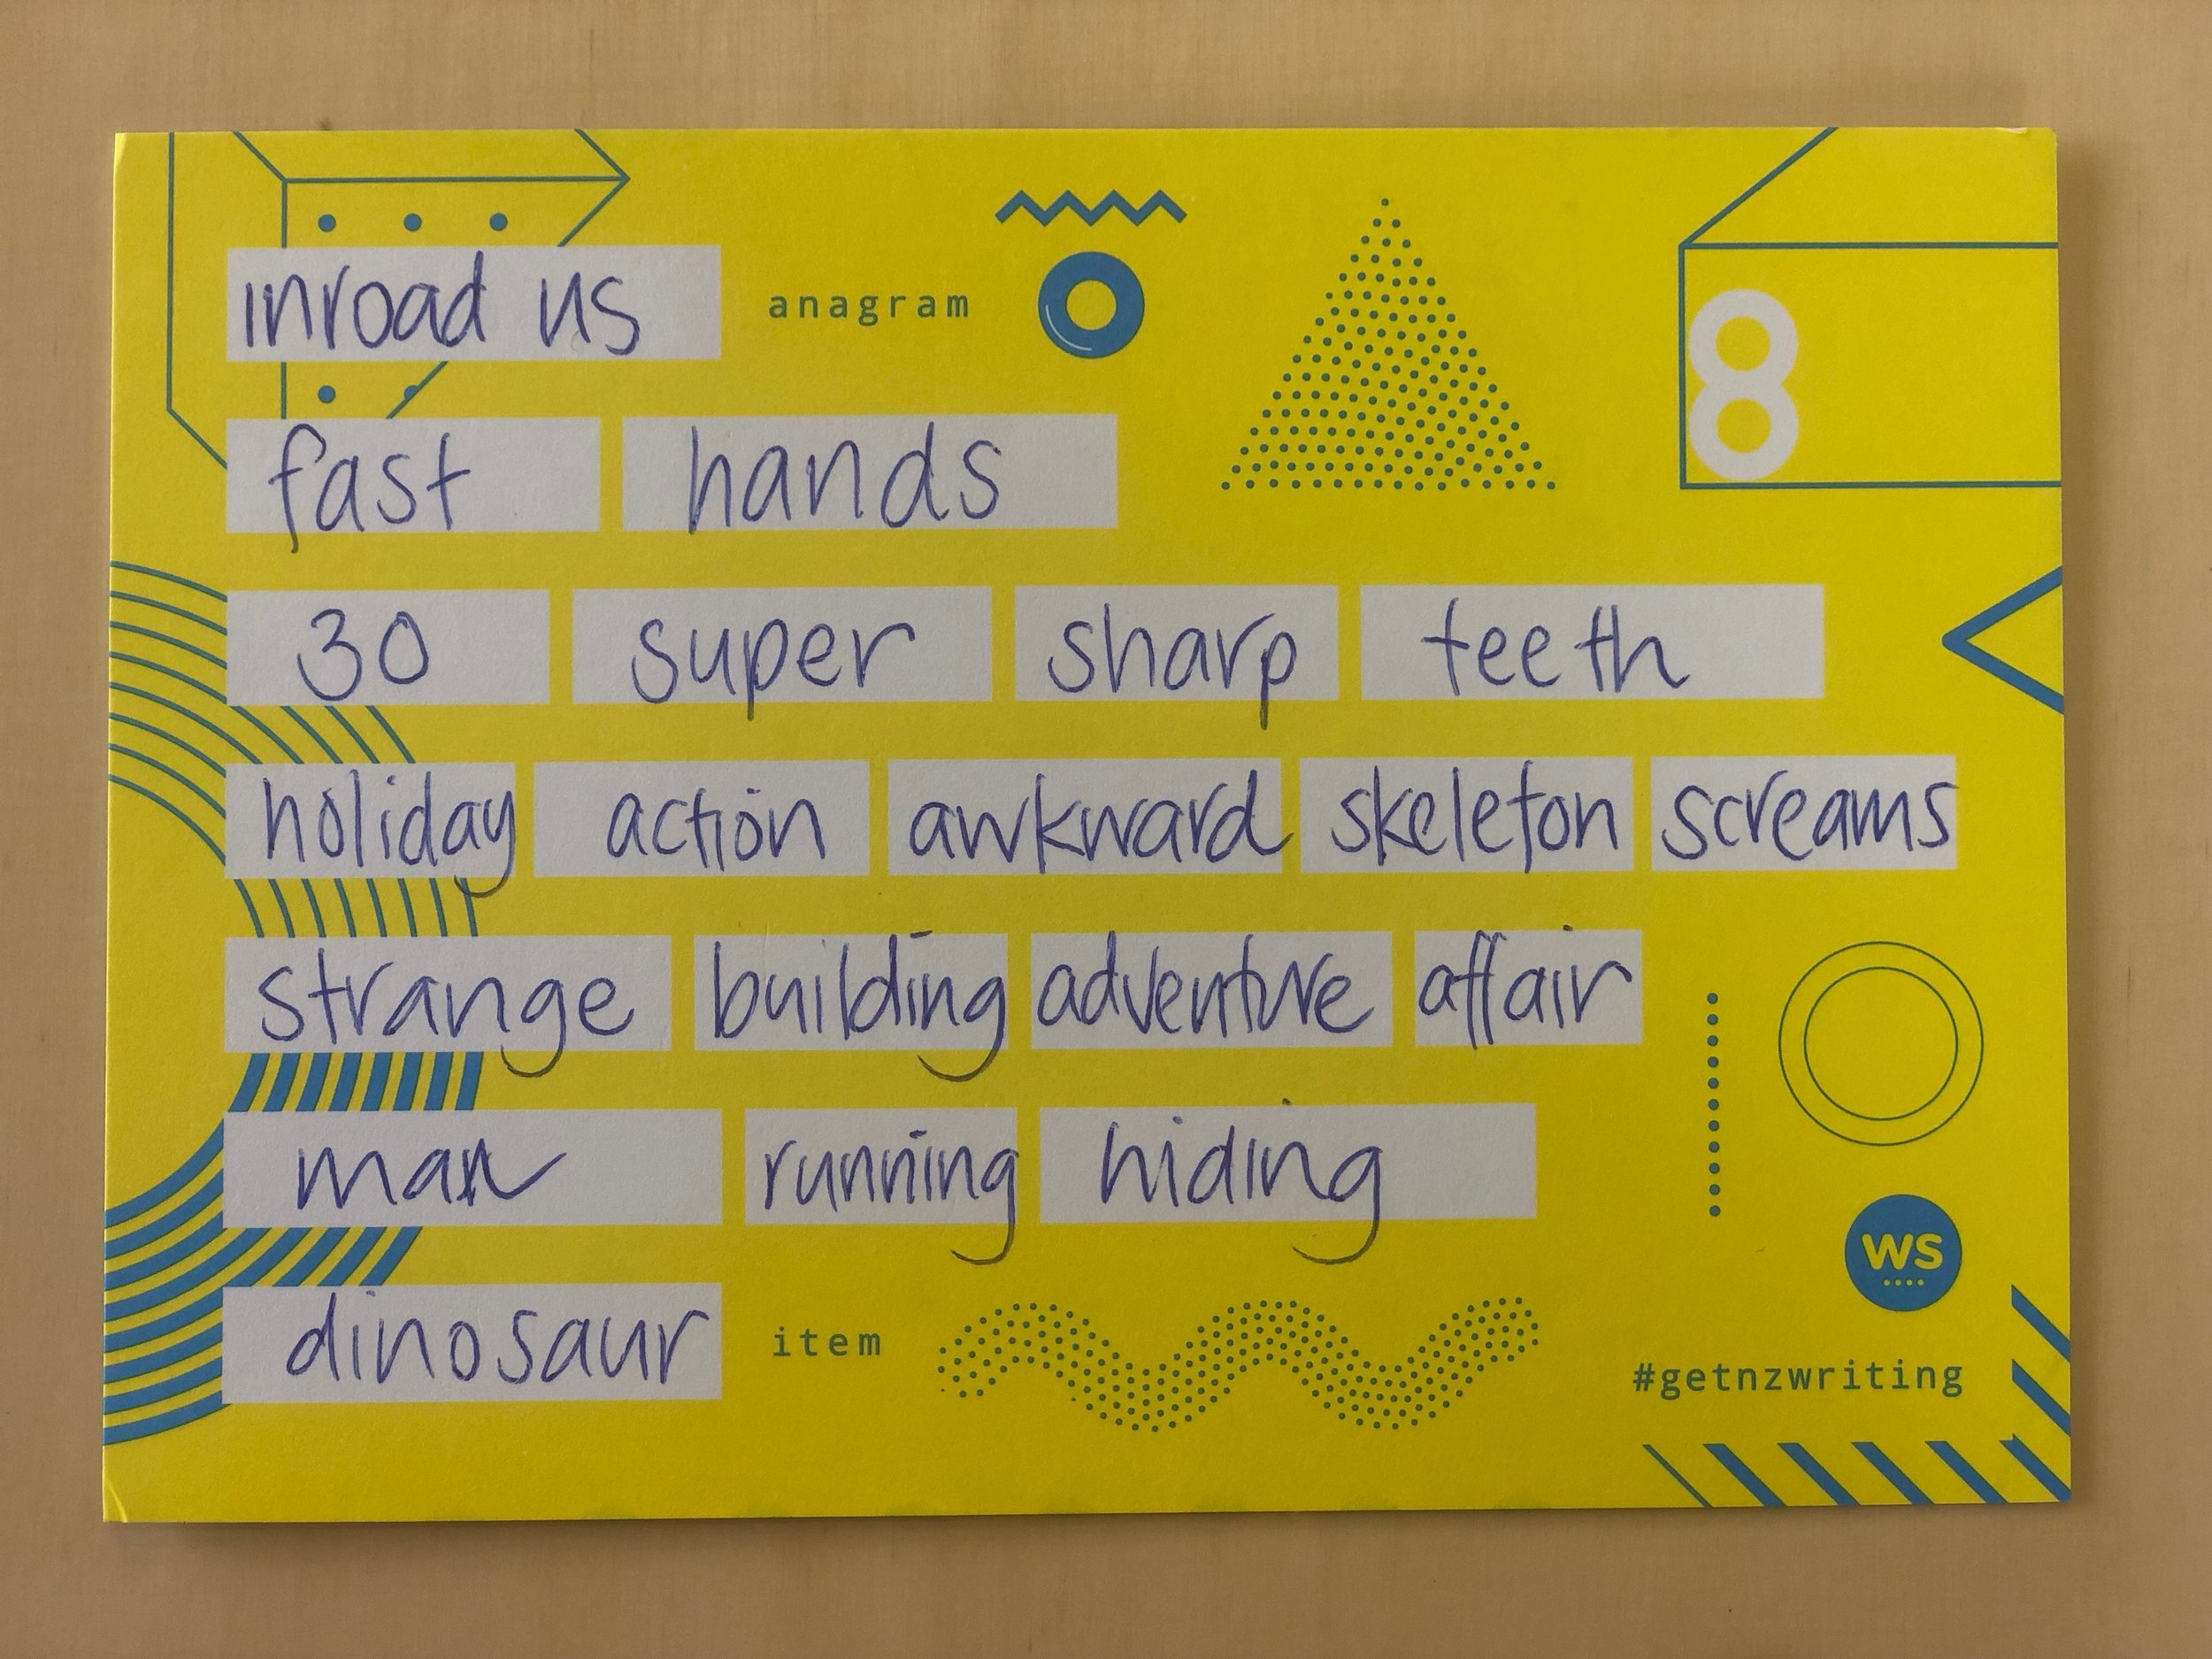 inroad us anagram
8
fast hands
30 super sharp teeth
holiday action awkward skeleton screams
strange building adventure affair
man running hiding
WS
dinosaur item
#getnzwriting